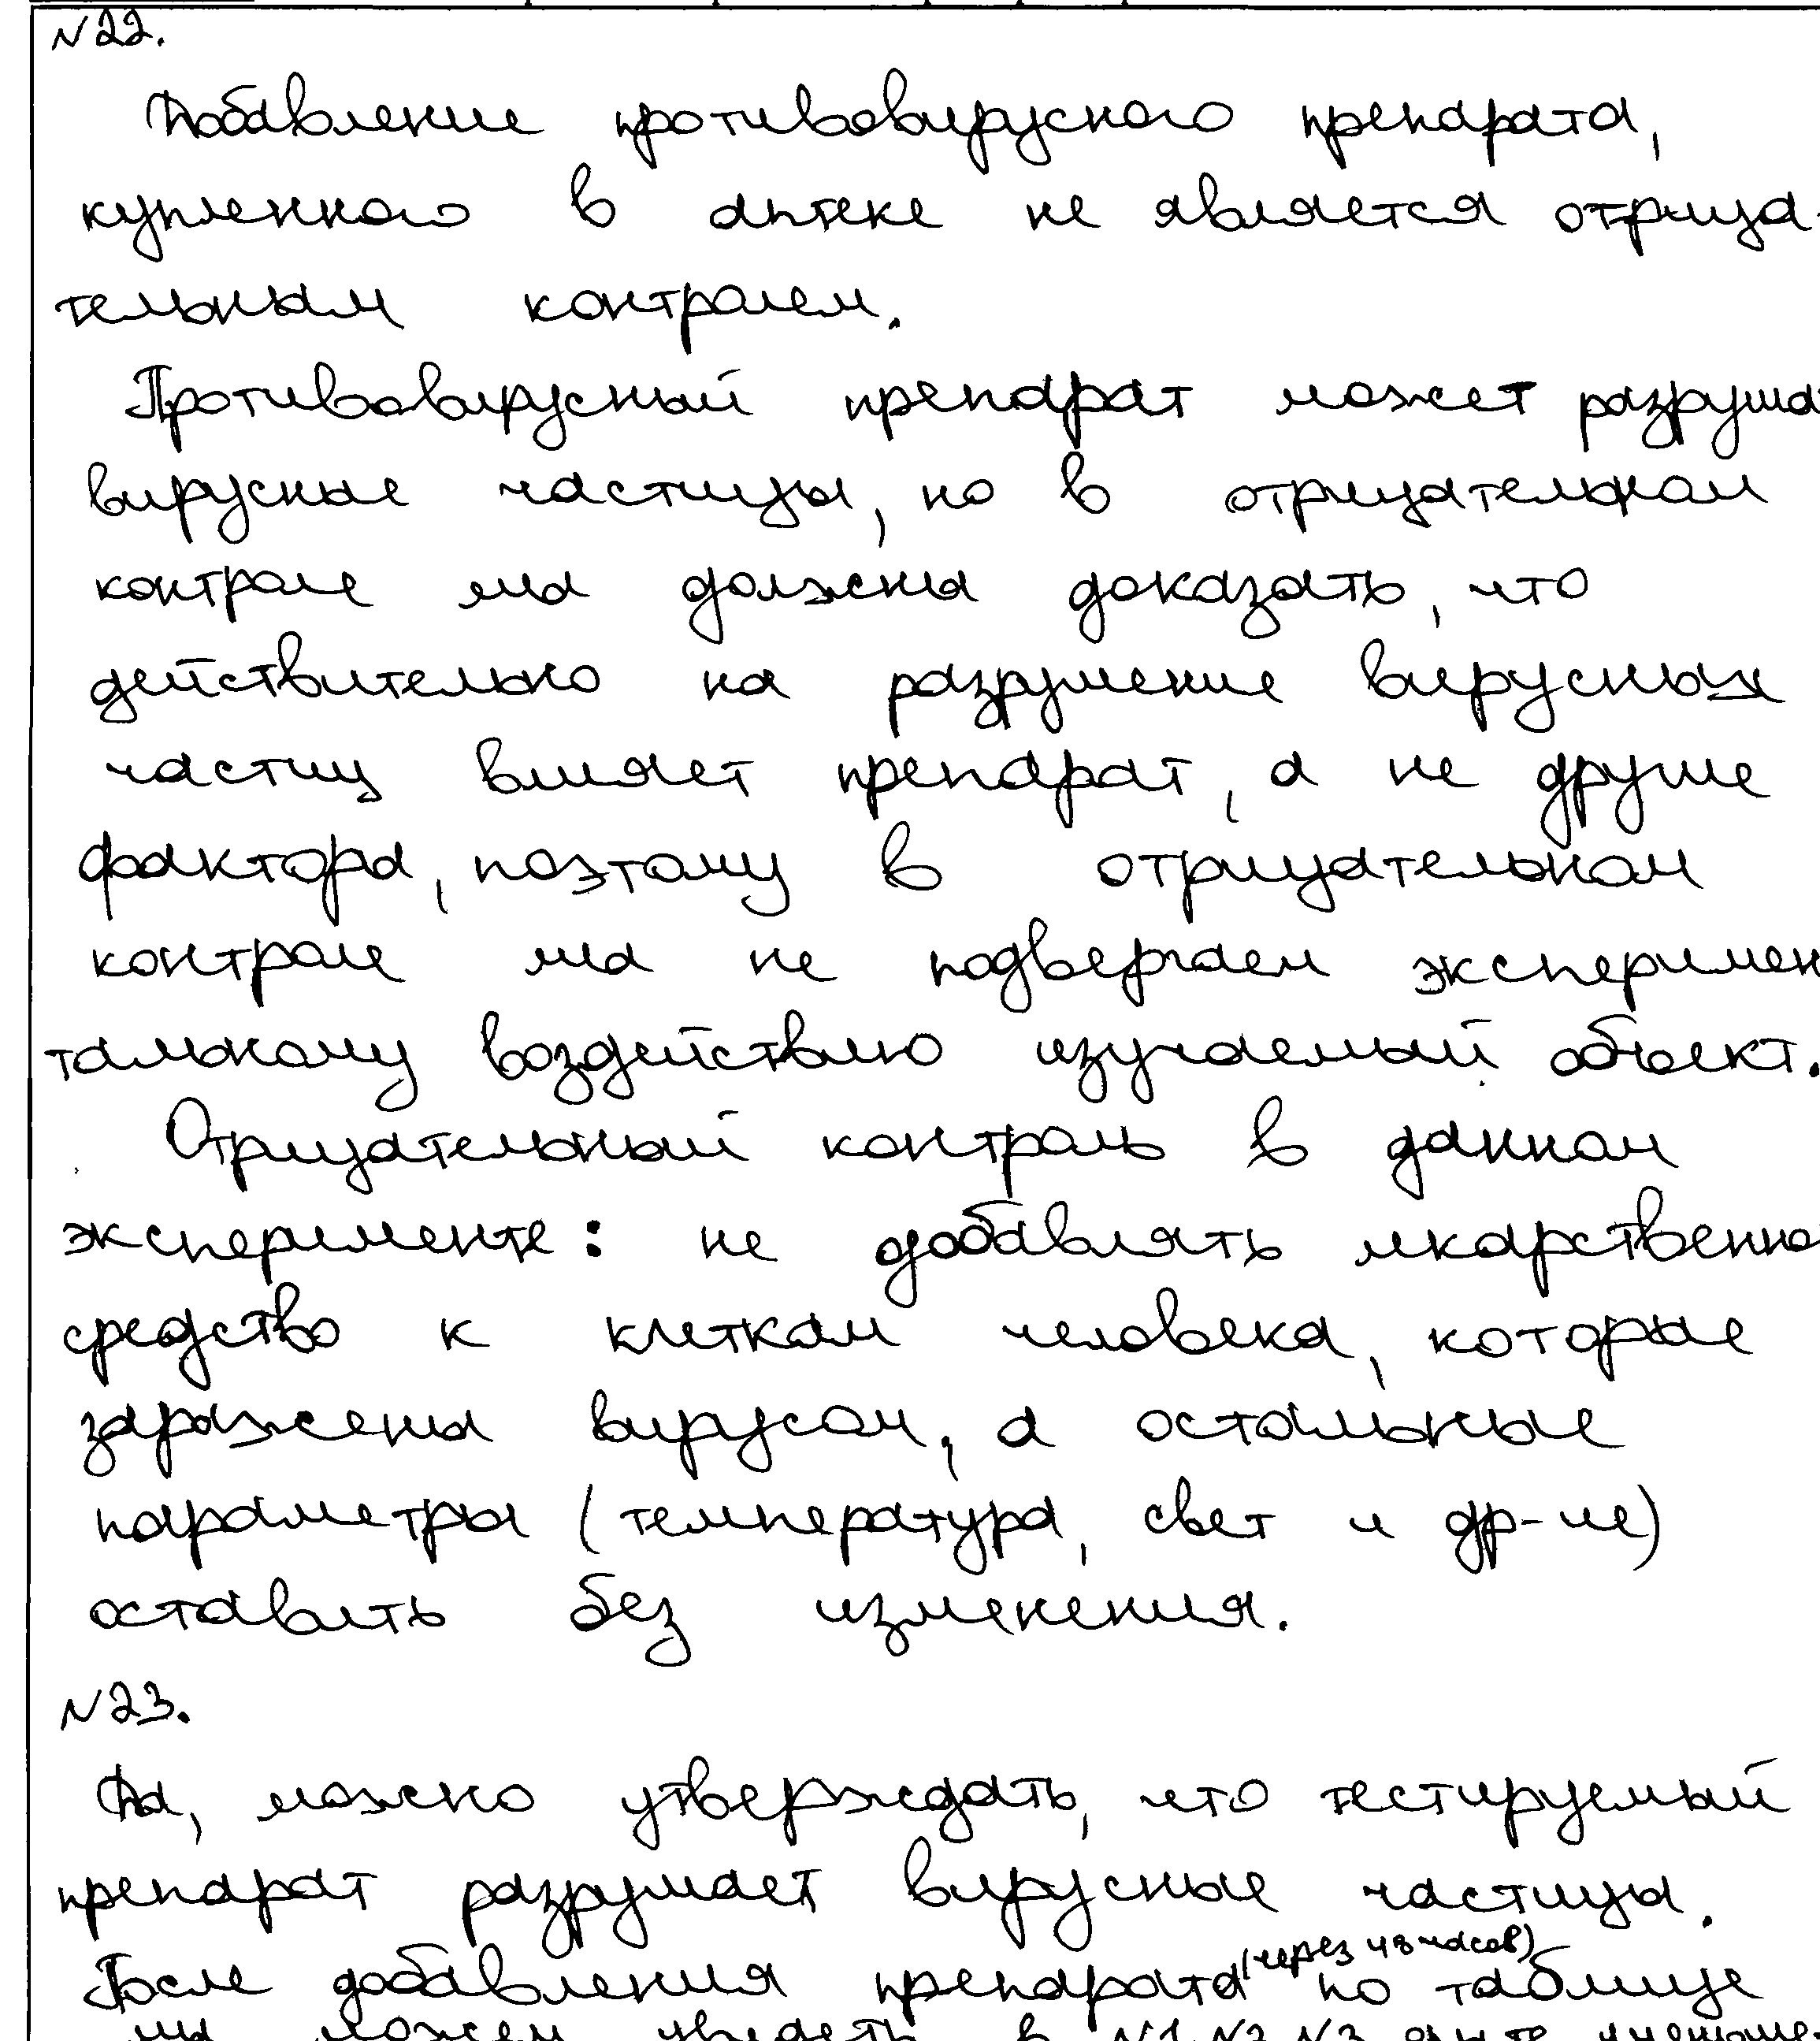 №22.
Добавление противовирусного препарата,
купленного в аптеке не является отрица-
тельным контролем.
Противовирусный препарат может разруша
вирусные частицы, но в отрицательном
контроле мы должны доказать, что
действительно на разрушение вирусных
частиц влияет препарат, а не другие
факторы, поэтому в отрицательном
контроле мы не подвергаем эксперимен
тальному воздействию изучаемый объект.
Отрицательный контроль в данном
эксперименте: не добавлять лекарственно
средство к клеткам человека, которые
заражены вирусом, а остальные
параметры (температура, свет и др-ие)
оставить без изменения.
№23.
Да, можно утверждать, что тестируемый
препарат разрушает вирусные частицы.
(через 48 часов)
После добавления препарата по таблице
мы можем увидеть в №1, №2, №3